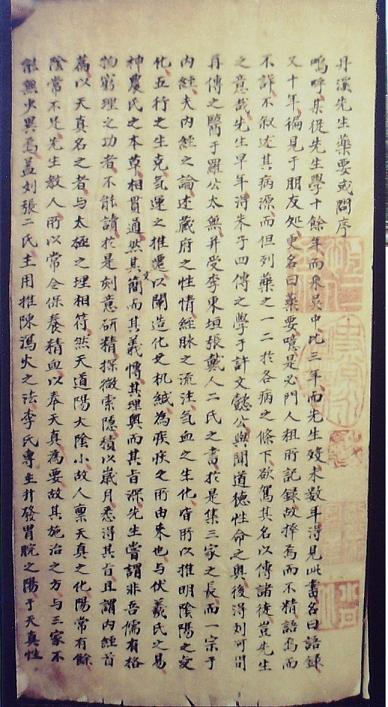 丹溪先生藥要或問序
嗚呼某從先生學十餘年而來吳中比三年而先生歿未數年得見此書名曰語錄
又十年徧見于朋友処更名曰藥要噫是必門人粗所記録故擇焉而不精語焉而
不詳不叙述其病源而但列藥之一二於各病之條下欲駕其名以傳諸徒豈先生
之意哉先生早年得朱子四傳之學于許文懿公與聞道德性命之奥後得刘河間
再傳之醫于羅公太無并受李東垣張戴人二氏之書於是集三家之長而一宗于
内經夫内經之論述藏府之性情經脉之流注氣血之生化皆所以推明陰陽之變
化五行之生克氣運之推遷以闡造化之机緘為疾疢之所由來也与伏羲氏之易
神農氏之本草相貫通然其文簡而其義博其理奥而其旨深先生嘗謂非吾儒有格
物窮理之功者不能讀於是刻意研精探微索隱積以歲月悉得其旨且謂内經首
篇以天真名之者与太極之理相符然天道陽大陰小故人禀天真之化陽常有餘
陰常不足先生教人所以常令保養精血以奉天真為要故其施治之方与三家不
能無少異焉盖刘張二氏主用推陳瀉火之法李氏專主升發胃脘之陽于天真性